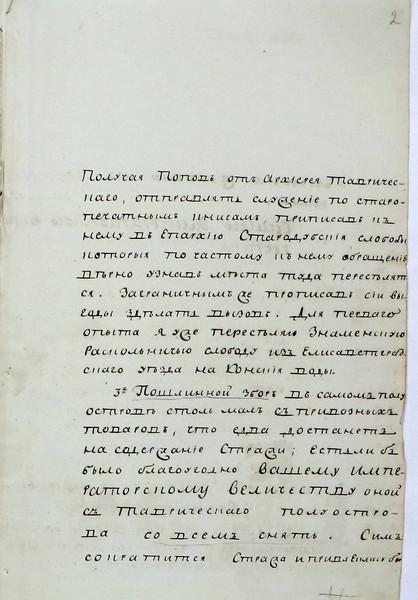 2
Получая Поповъ отъ Архіерея Тавричес-
наго, отправлять служеніе по старо-
печатнымъ книгамъ приписавъ къ
нему въ Епархію Стародубскія слободы
которыя по частому къ нему обращенію
вѣрно узнавъ мѣста туда переселят-
ся. Заграничнымъ же прописавъ сіи вы-
годы здѣлать вызовъ. Для перваго
опыта я уже переселяю Знаменскую
Раскольничью слободу изъ Елисаветград-
скаго уѣзда на Конскія воды.
3е Пошлинной зборъ въ самомъ полу
островѣ столь малъ съ привозныхъ
товаровъ, что едва достаетъ
на содержаніе Стражи; Естьли бъ
было благоугодно Вашему Импе-
раторскому Величеству оной
съ Таврическаго полуостро-
ва со всемъ снять. Симъ
сократится Стража и привлеклись бы